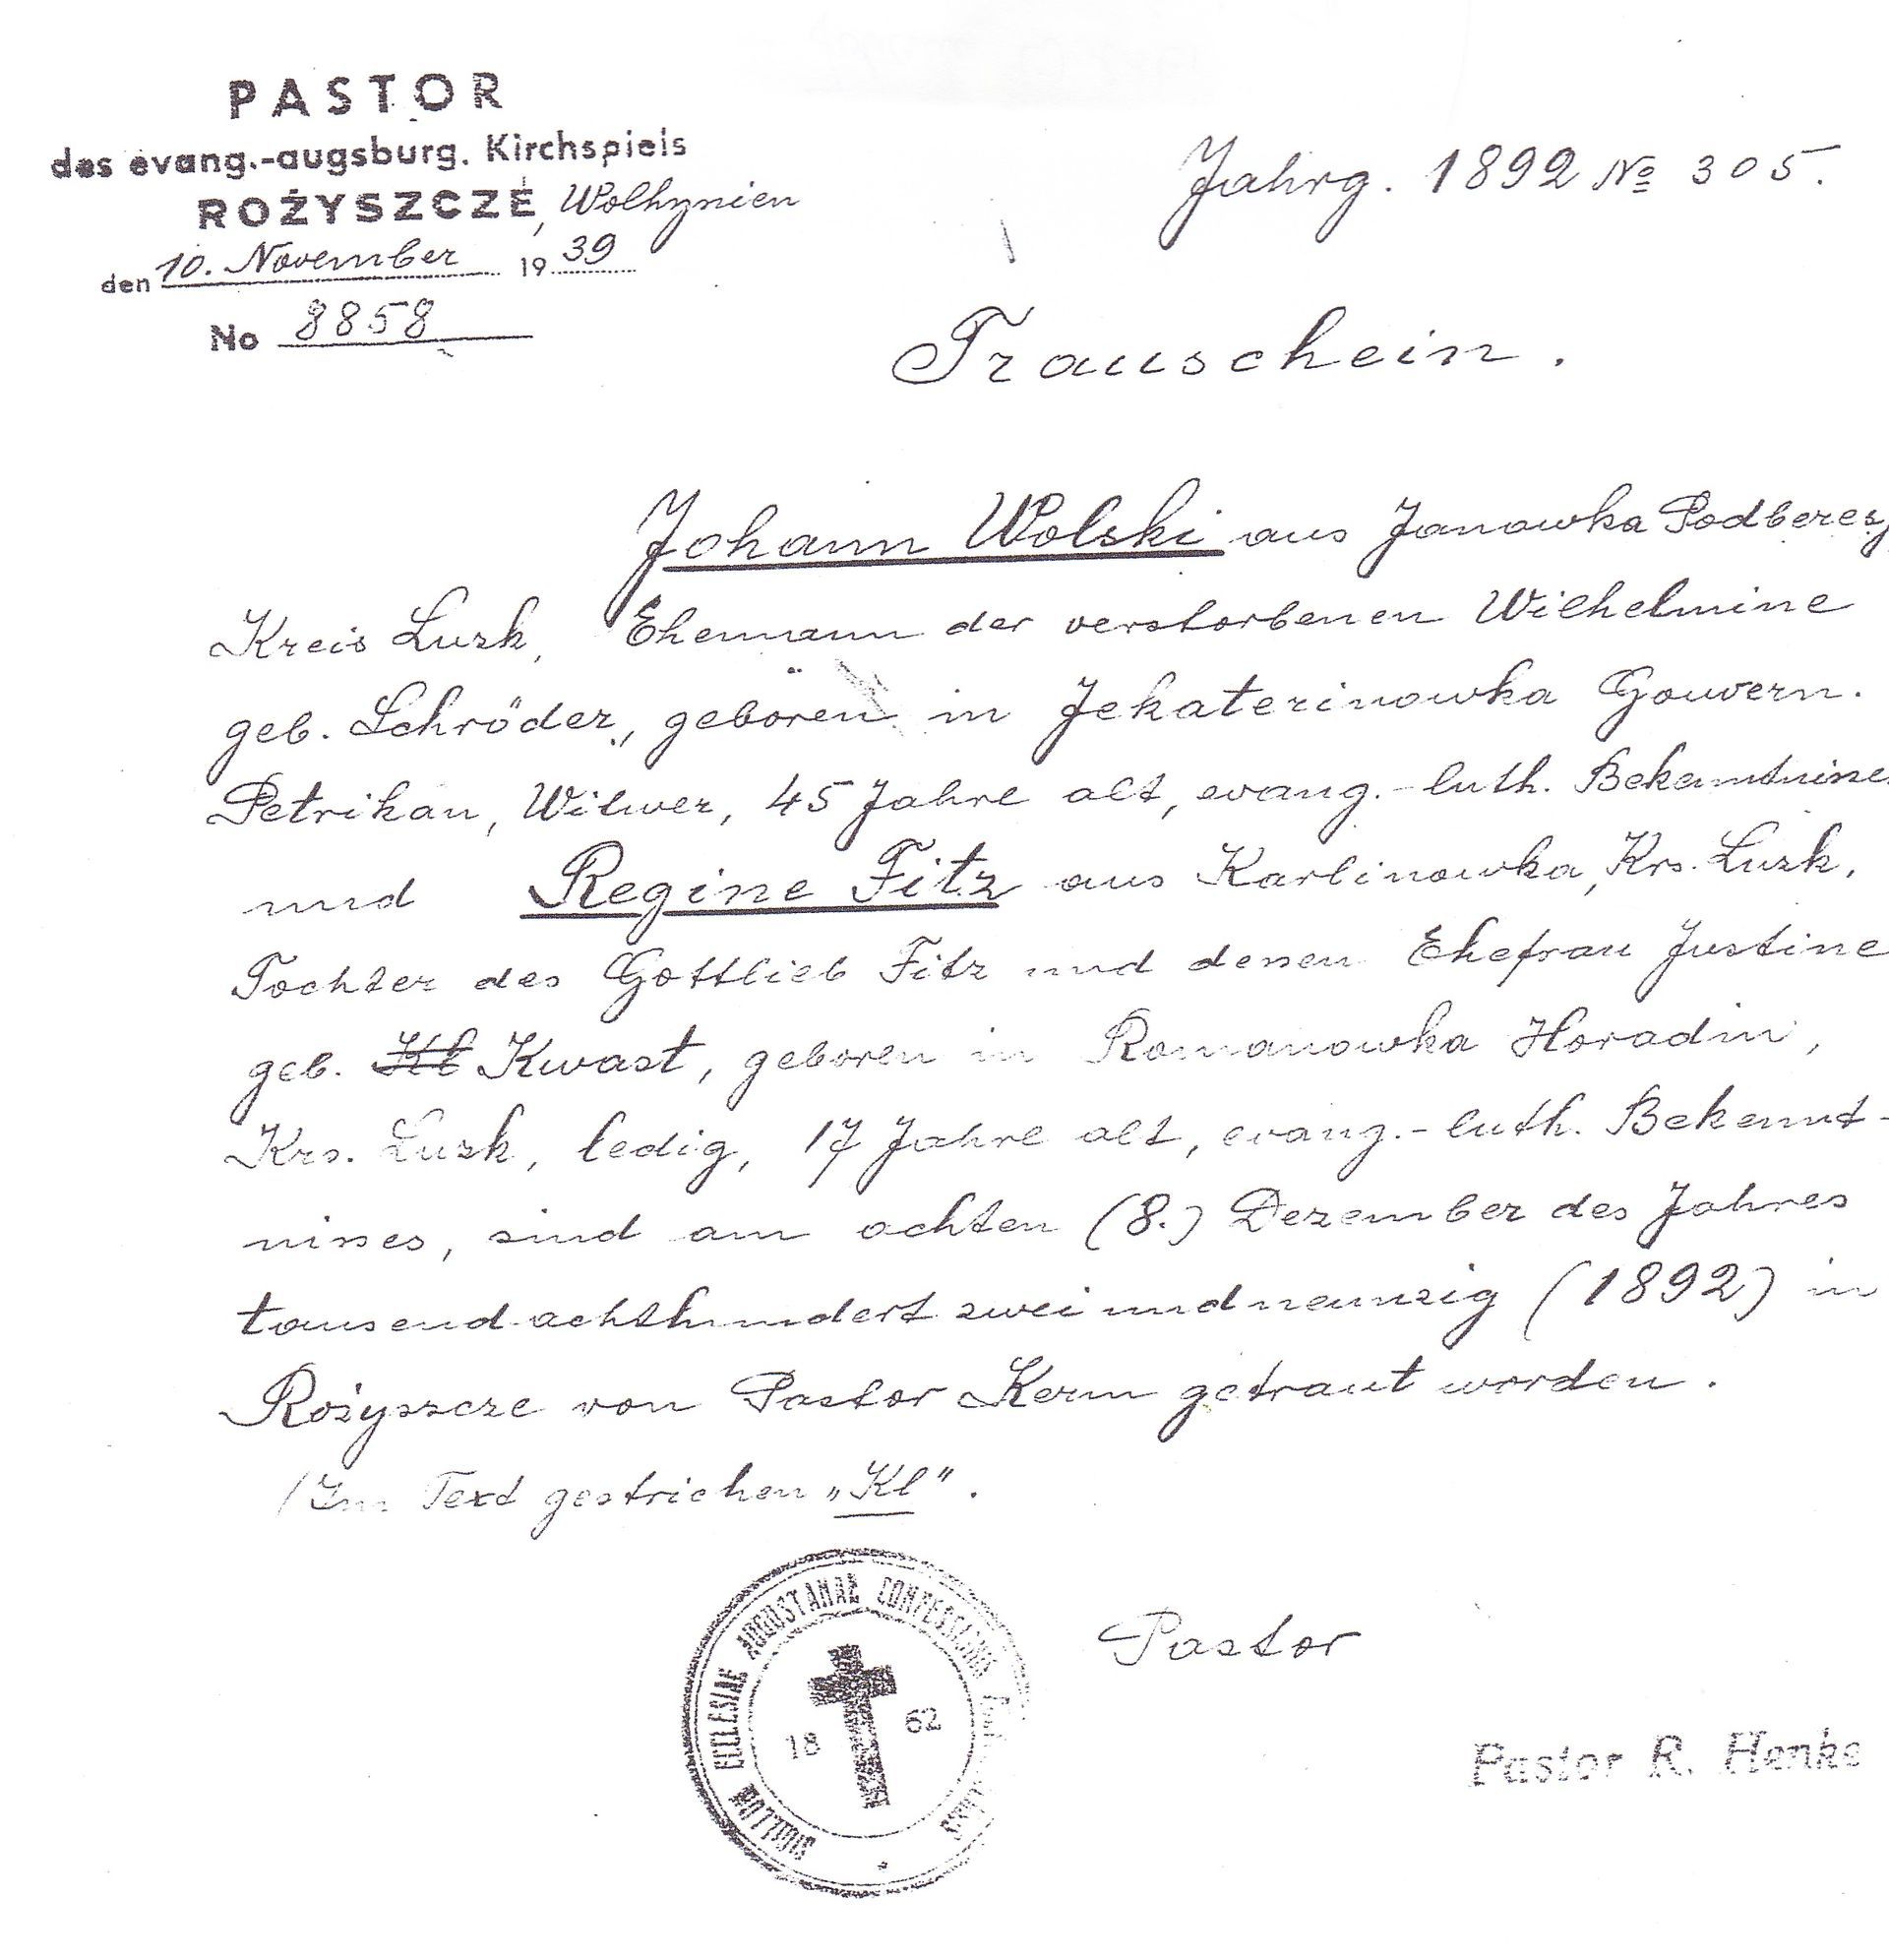 PASTOR
des evang.-augsburg. Kirchspiels
ROŻYSZCZE, Wolhynien
den 10. November 1939
No 8858
Jahrg. 1892 № 305.
Trauschein.
Johann Wolski aus Janowka Podberez
Kreis Luzk, Ehemann der verstorbenen Wilhelmine
geb. Schröder, geboren in Jekaterinowka Gouvern.
Petrikau, Witwer, 45 Jahre alt, evang.-luth. Bekenntnisses
und Regine Fitz aus Karlinowka, Krs. Luzk,
Tochter des Gottlieb Fitz und dessen Ehefrau Justine
geb. Kl Kwast, geboren in Romanowka Horadin,
Krs. Luzk, ledig, 17 Jahre alt, evang.-luth. Bekennt-
nisses, sind am achten (8.) Dezember des Jahres
tausend achthundert zwei und neunzig (1892) in
Rożyszcze von Pastor Kern getraut worden.
/Im Text gestrichen „Kl".
SIGILLUM ECCLESIAE AUGUSTANAE CONFESSIONIS
18 62
Pastor
Pastor R. Henke